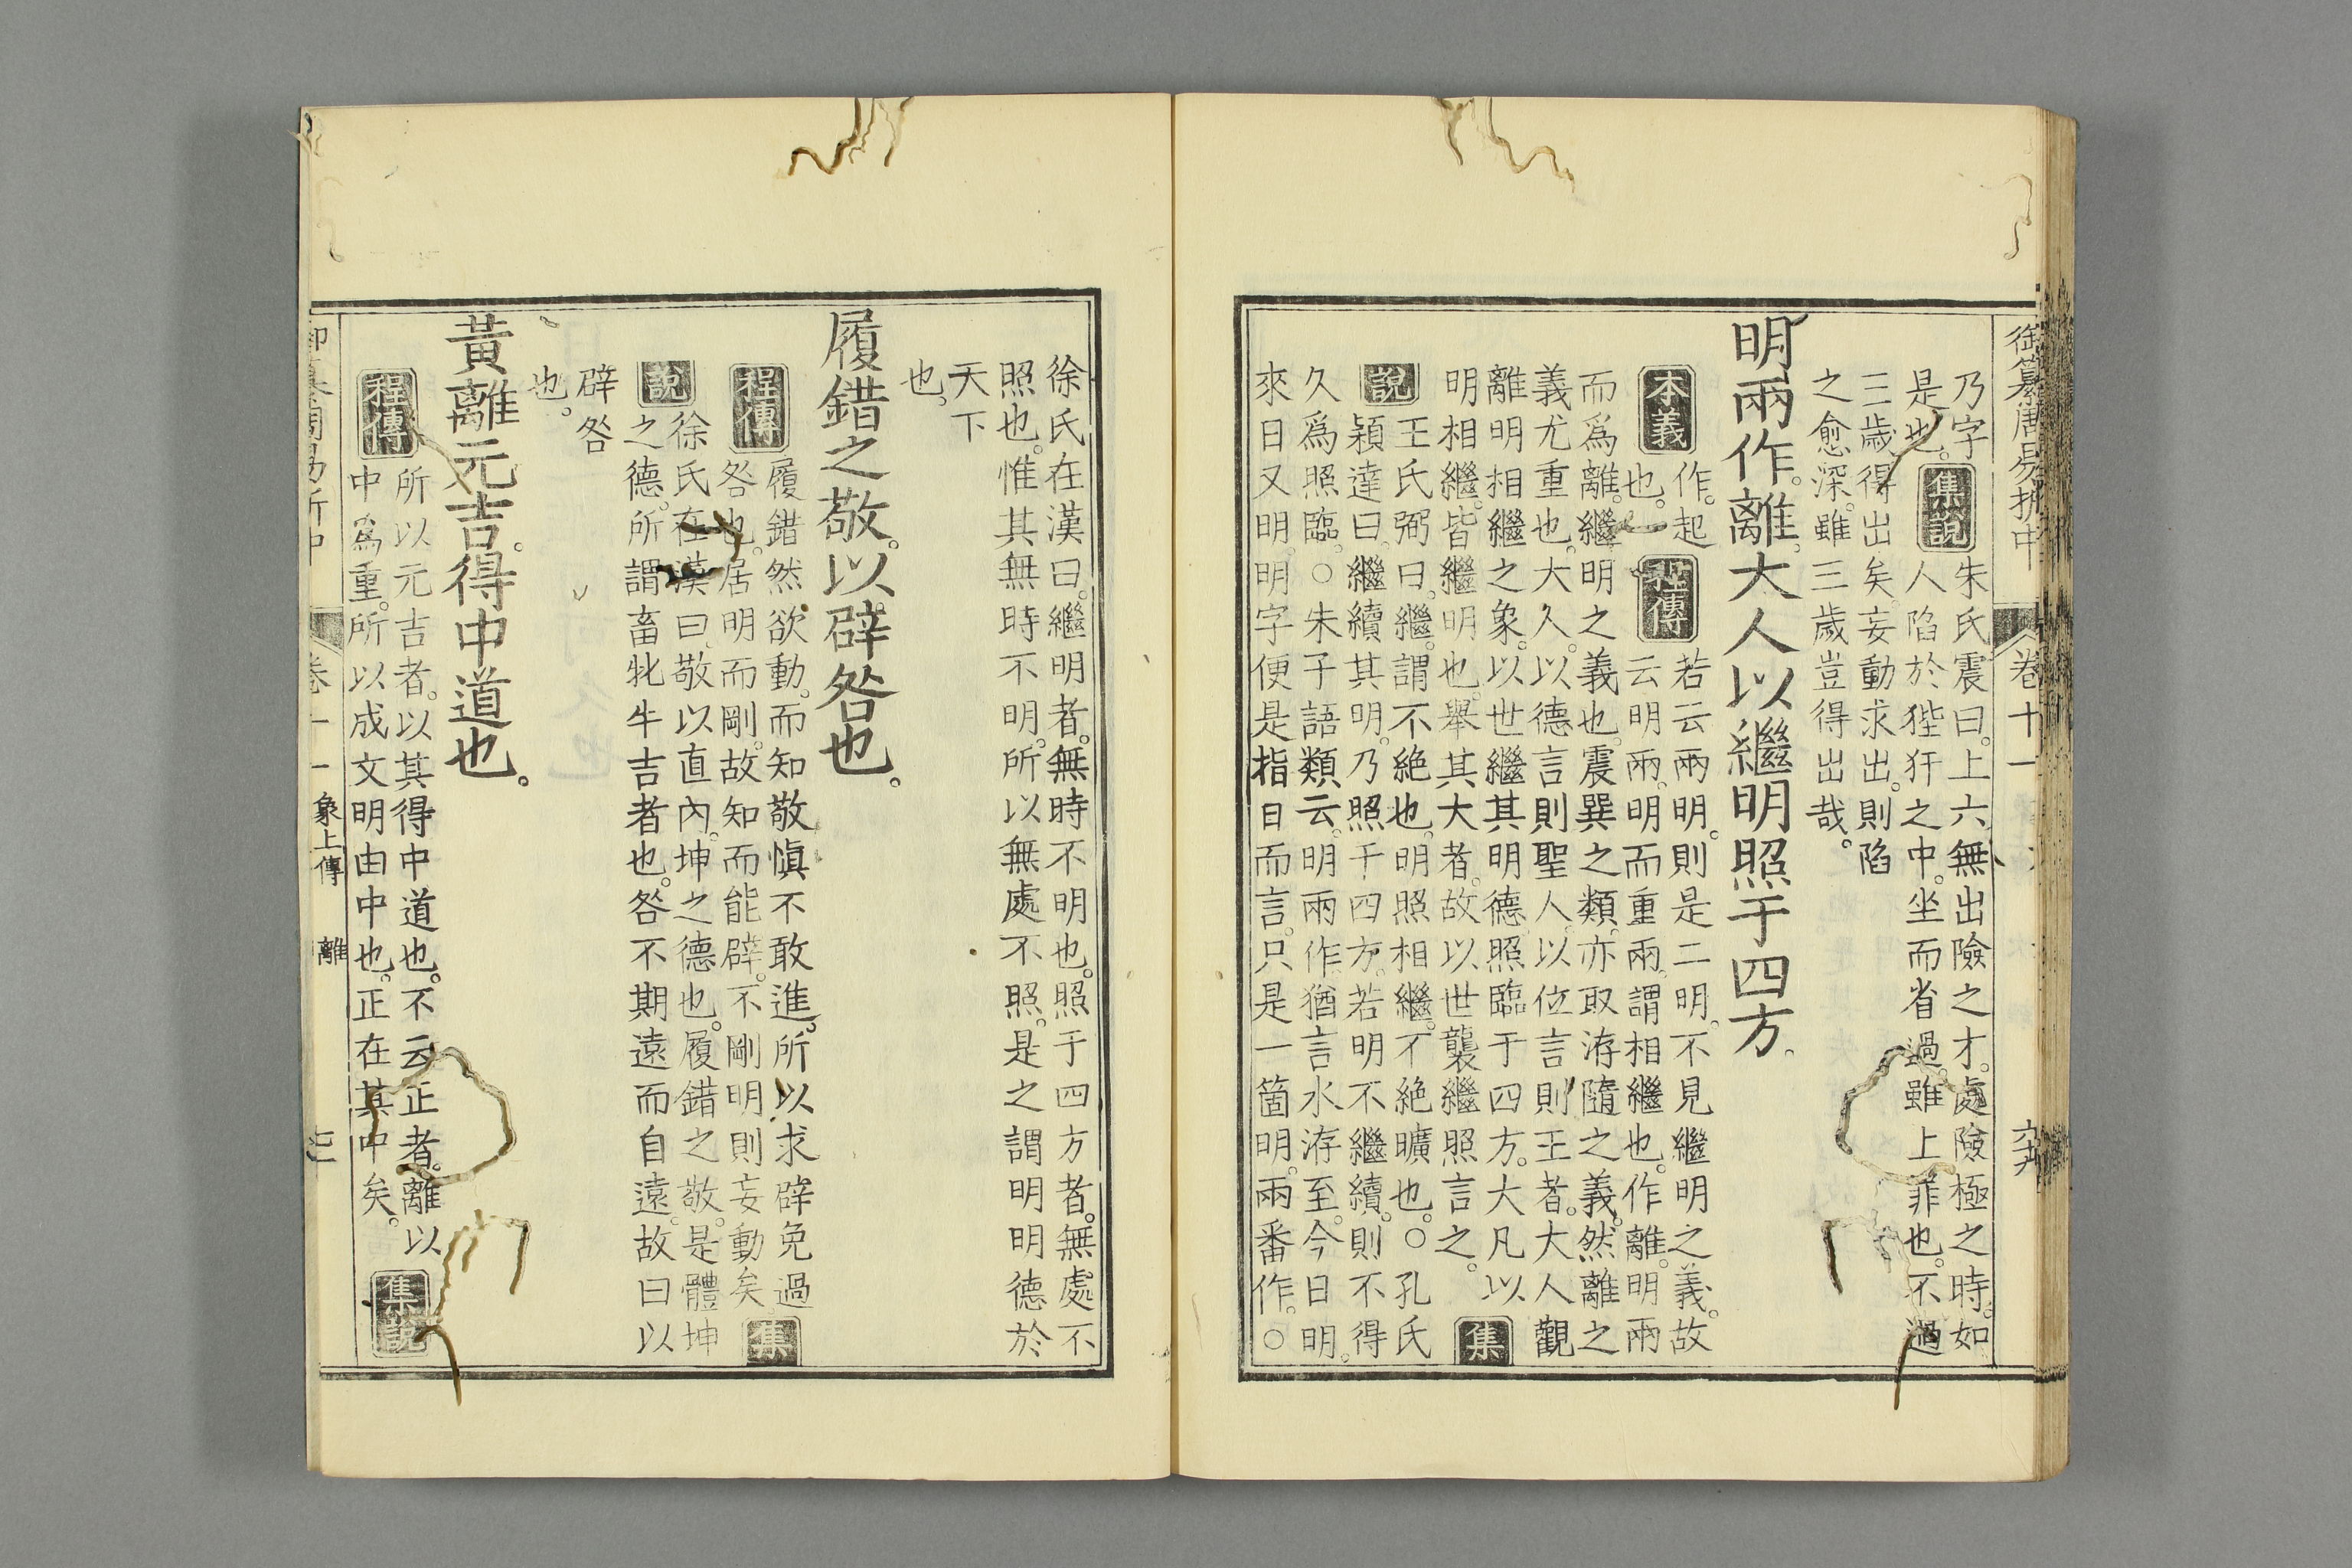 御纂周易折中
卷十一
乃字
是也。
集說
朱氏震曰。上六無出險之才。處險極之時。如
人陷於狴犴之中。坐而省過。雖上罪也。不過
三歲得出矣。妄動求出。則陷
之愈深。雖三歲豈得出哉。
明兩作。離。大人以繼明照于四方。
本義
作。起
也。
程傳
若云兩明。則是二明。不見繼明之義。故
云明兩。明而重兩。謂相繼也。作離。明兩
而為離。繼明之義也。震巽之類。亦取洊隨之義。然離之
義尤重也。大人。以德言則聖人。以位言則王者。大人觀
離明相繼之象。以世繼其明德。照臨于四方。大凡以
明相繼。皆繼明也。舉其大者。故以世襲繼照言之。
集
說
王氏弼曰。繼。謂不絶也。明照相繼。不絶曠也。○孔氏
穎達曰。繼續其明。乃照于四方。若明不繼續。則不得
久為照臨。○朱子語類云。明兩作。猶言水洊至。今日明。
來日又明。明字便是指日而言。只是一箇明。兩番作。○
徐氏在漢曰。繼明者。無時不明也。照于四方者。無處不
照也。惟其無時不明。所以無處不照。是之謂明明德於
天下
也。
履錯之敬。以辟咎也。
程傳
履錯然欲動。而知敬愼不敢進。所以求辟免過
咎也。居明而剛。故知而能辟。不剛明則妄動矣。
集
說
徐氏在漢曰。敬以直內。坤之德也。履錯之敬。是體坤
之德。所謂畜牝牛吉者也。咎不期遠而自遠。故曰以
辟咎
也。
黃離元吉。得中道也。
程傳
所以元吉者。以其得中道也。不云正者。離以
中為重。所以成文明由中也。正在其中矣。
集說
卷十一
象上傳
離